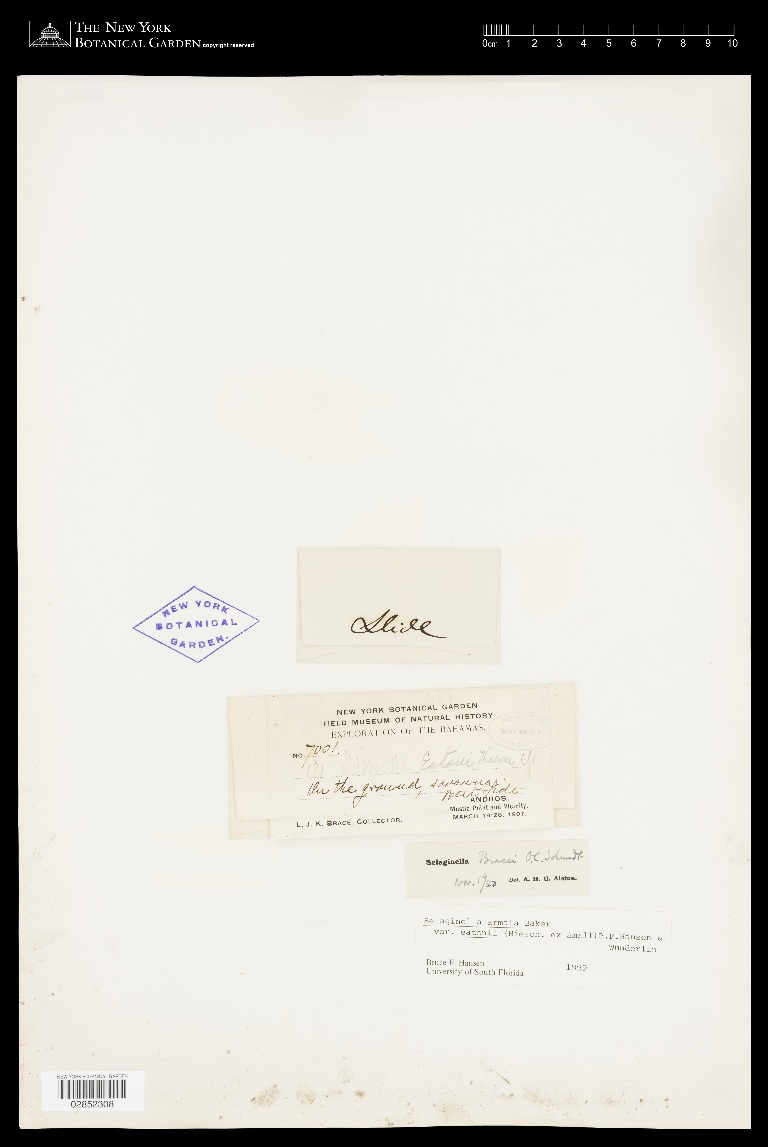 THE NEW YORK
BOTANICAL GARDEN copyright reserved
0cm 1 2 3 4 5 6 7 8 9 10
NEW YORK
BOTANICAL
GARDEN.
Slide
NEW YORK BOTANICAL GARDEN
FIELD MUSEUM OF NATURAL HISTORY
EXPLORATION OF THE BAHAMAS.
NO. 7001.
Eatoni Hieron
On the ground, savannas.
ANDROS
Mastic Point and Vicinity.
L. J. K. BRACE, COLLECTOR.
MARCH 14-28, 1907.
Selaginella Bracei O.C. Schmidt
Nov. 19/50 Det. A. H. G. Alston.
Selaginella armata Baker
var. eatonii (Hieron. ex Small) B.F.Hansen &
Wunderlin
Bruce F. Hansen
University of South Florida
NEW YORK BOTANICAL GARDEN
02852308